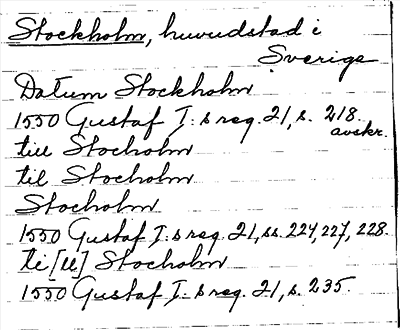 Stockholm, huvudstad i
Sverige
Datum Stockholm
1550 Gustaf I:s reg. 21, s. 218.
avskr.
till Stocholm
til Stocholm
Stocholm
1550 Gustaf I:s reg. 21, ss. 224, 227, 228.
ti[ll] Stocholm
1550 Gustaf I:s reg. 21, s. 235.